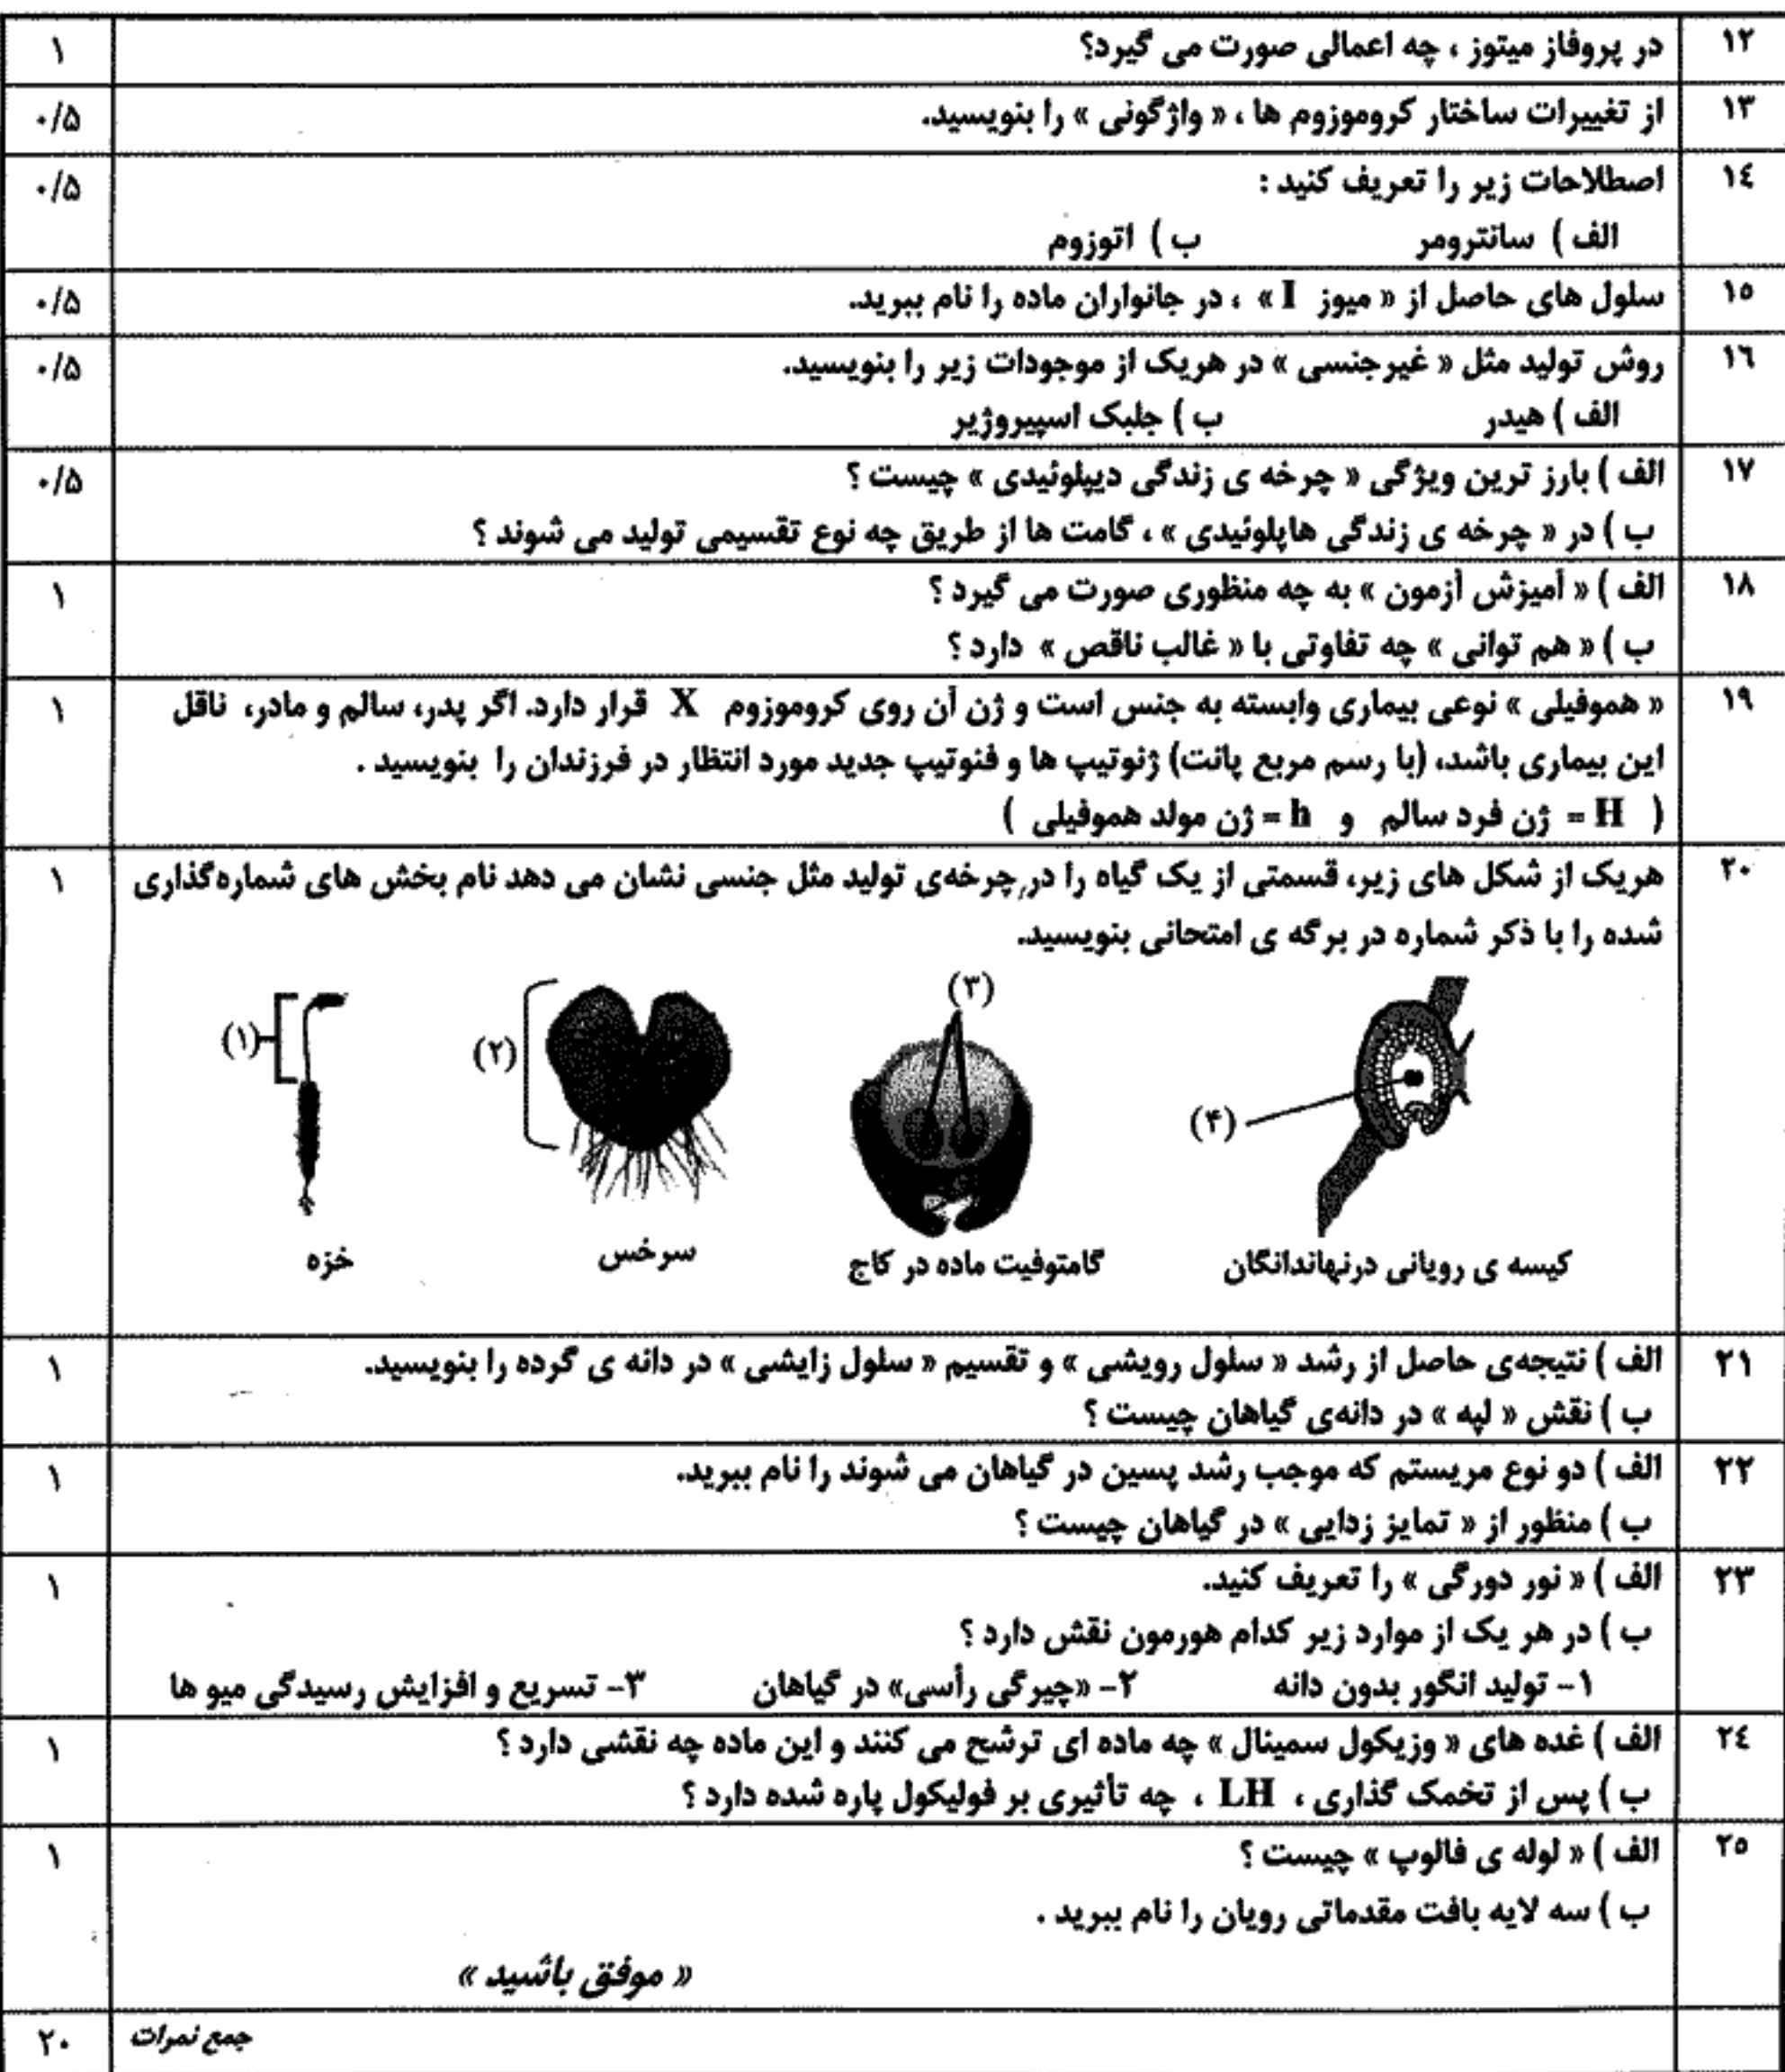 ۱۲ در پروفاز میتوز ، چه اعمالی صورت می گیرد؟ ۱
۱۳ از تغییرات ساختار کروموزوم ها ، « واژگونی » را بنویسید. ۰/۵
۱٤ اصطلاحات زیر را تعریف کنید : ۰/۵
الف ) سانترومر ب ) اتوزوم
۱٥ سلول های حاصل از « میوز I » ، در جانواران ماده را نام ببرید. ۰/۵
۱٦ روش تولید مثل « غیرجنسی » در هریک از موجودات زیر را بنویسید. ۰/۵
الف ) هیدر ب ) جلبک اسپیروژیر
۱۷ الف ) بارز ترین ویژگی « چرخه ی زندگی دیپلوئیدی » چیست ؟ ۰/۵
ب ) در « چرخه ی زندگی هاپلوئیدی » ، گامت ها از طریق چه نوع تقسیمی تولید می شوند ؟
۱۸ الف ) « آمیزش آزمون » به چه منظوری صورت می گیرد ؟ ۱
ب ) « هم توانی » چه تفاوتی با « غالب ناقص » دارد ؟
۱۹ « هموفیلی » نوعی بیماری وابسته به جنس است و ژن آن روی کروموزوم X قرار دارد. اگر پدر، سالم و مادر، ناقل ۱
این بیماری باشد، (با رسم مربع پانت) ژنوتیپ ها و فنوتیپ جدید مورد انتظار در فرزندان را بنویسید .
( H = ژن فرد سالم و h = ژن مولد هموفیلی )
۲۰ هریک از شکل های زیر، قسمتی از یک گیاه را در چرخه‌ی تولید مثل جنسی نشان می دهد نام بخش های شماره‌گذاری ۱
شده را با ذکر شماره در برگه ی امتحانی بنویسید.
(۴) (۳) (۲) (۱)
کیسه ی رویانی درنهاندانگان گامتوفیت ماده در کاج سرخس خزه
۲۱ الف ) نتیجه‌ی حاصل از رشد « سلول رویشی » و تقسیم « سلول زایشی » در دانه ی گرده را بنویسید. ۱
ب ) نقش « لپه » در دانه‌ی گیاهان چیست ؟
۲۲ الف ) دو نوع مریستم که موجب رشد پسین در گیاهان می شوند را نام ببرید. ۱
ب ) منظور از « تمایز زدایی » در گیاهان چیست ؟
۲۳ الف ) « نور دورگی » را تعریف کنید. ۱
ب ) در هر یک از موارد زیر کدام هورمون نقش دارد ؟
۱- تولید انگور بدون دانه ۲- «چیرگی رأسی» در گیاهان ۳- تسریع و افزایش رسیدگی میو ها
۲٤ الف ) غده های « وزیکول سمینال » چه ماده ای ترشح می کنند و این ماده چه نقشی دارد ؟ ۱
ب ) پس از تخمک گذاری ، LH ، چه تأثیری بر فولیکول پاره شده دارد ؟
۲٥ الف ) « لوله ی فالوپ » چیست ؟ ۱
ب ) سه لایه بافت مقدماتی رویان را نام ببرید .
« موفق باشید »
جمع نمرات ۲۰